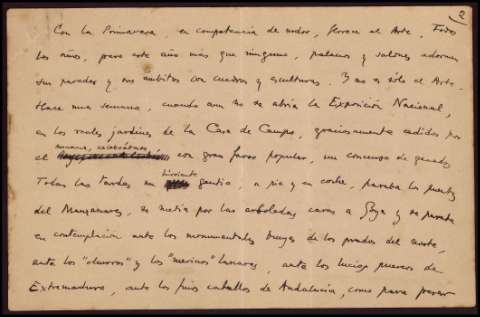 2
Con la Primavera, en competencia de nidos, florece el Arte. Todos
los años, pero este año más que ninguno, palacios y salones adornan
sus paredes y sus ámbitos con cuadros y esculturas. Y no es sólo el Arte.
Hace una semana, cuando aun no se abría la Exposición Nacional,
en los reales jardines de la Casa de Campo, graciosamente cedidos por
el monarca, celebrábase con gran favor popular, un concurso de ganados
Todas las tardes un hirviente gentío, a pie y en coche, pasaba los puentes
del Manzanares, se metía por las arboledas caras a Goya y se paraba
en contemplación ante los monumentales bueyes de los prados del norte,
ante los "churros" y los "merinos" lanares, ante los lucios puercos de
Extremadura, ante los finos caballos de Andalucía, como para